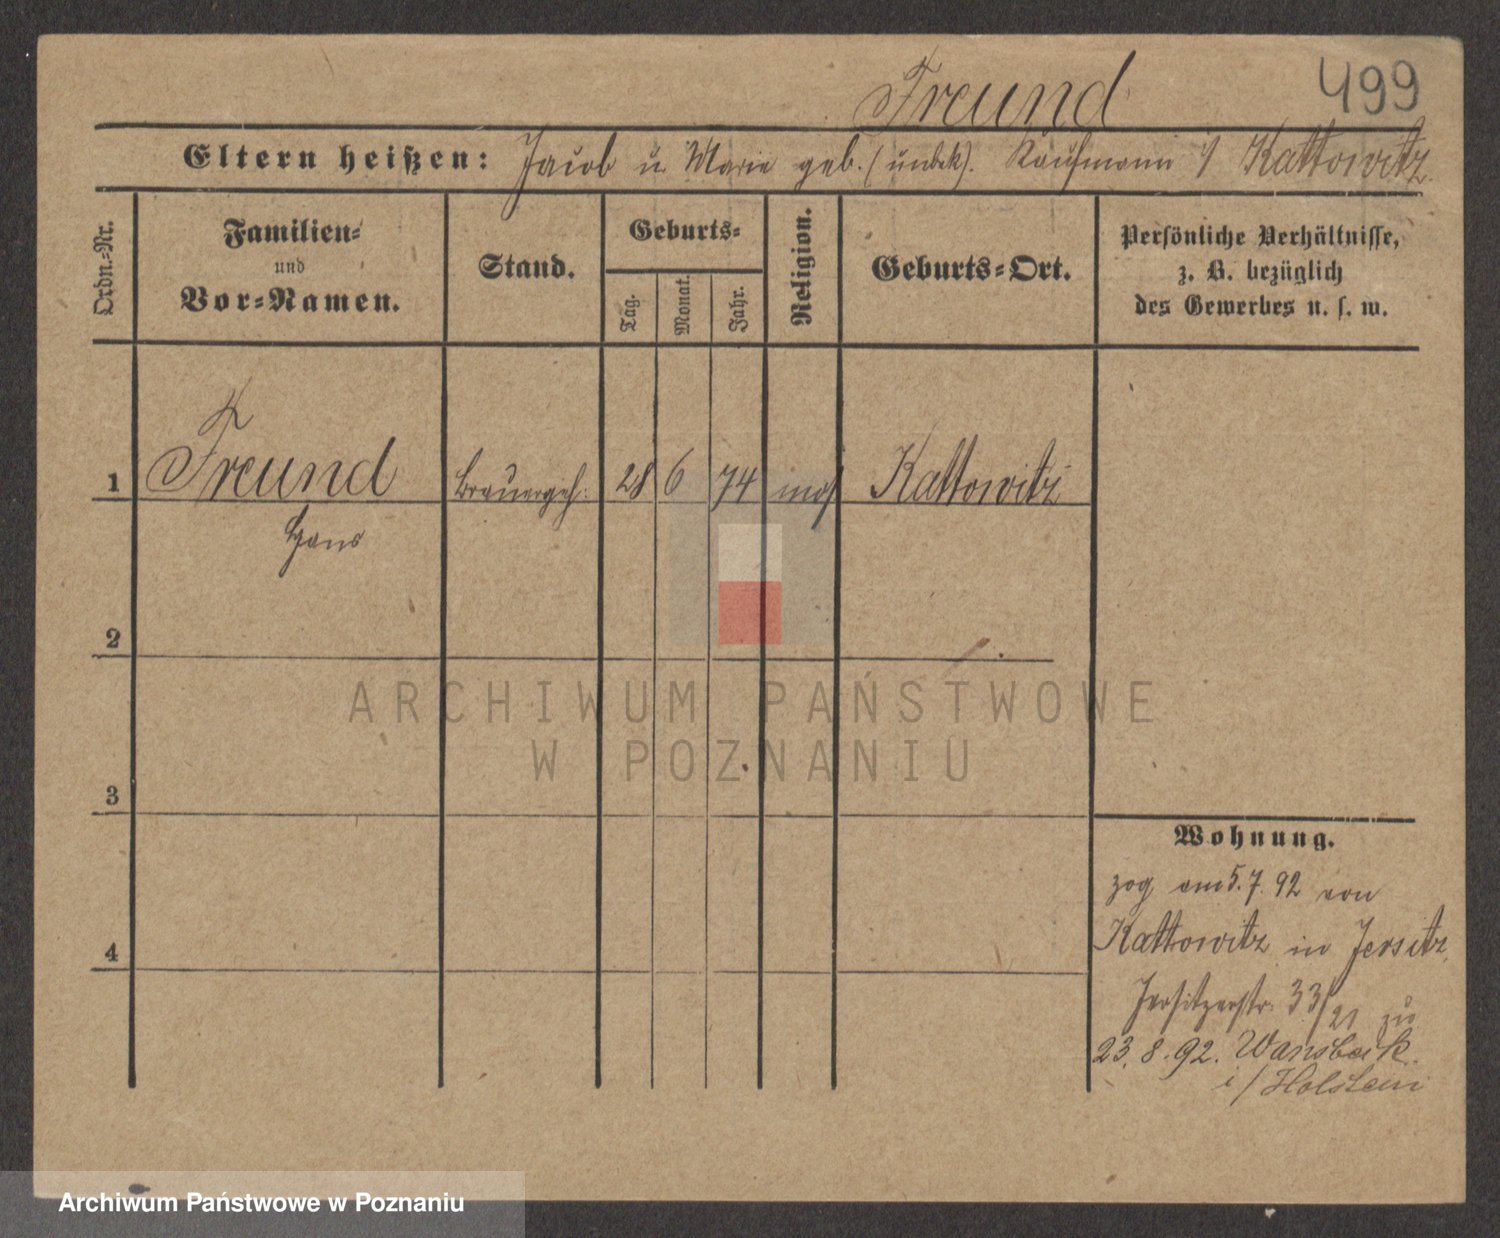 499
Freund
Eltern heißen: Jacob u. Marie geb. (unbek). Kaufmann i/ Kattowitz.
Ordn.-Nr.
Familien-
und
Vor-Namen.
Stand.
Geburts-
Tag.
Monat.
Jahr.
Religion.
Geburts-Ort.
Persönliche Verhältnisse,
z. B. bezüglich
des Gewerbes u. s. w.
1 Freund Brauergeh. 28 6 74 mos Kattowitz
Hans
2
3
4
Wohnung.
zog am 5.7.92 von
Kattowitz in Jersitz,
Jersitzerstr. 33/21 zu
23.8.92. Wansbeck
i/Holstein
ARCHIWUM PAŃSTWOWE
W POZNANIU
Archiwum Państwowe w Poznaniu